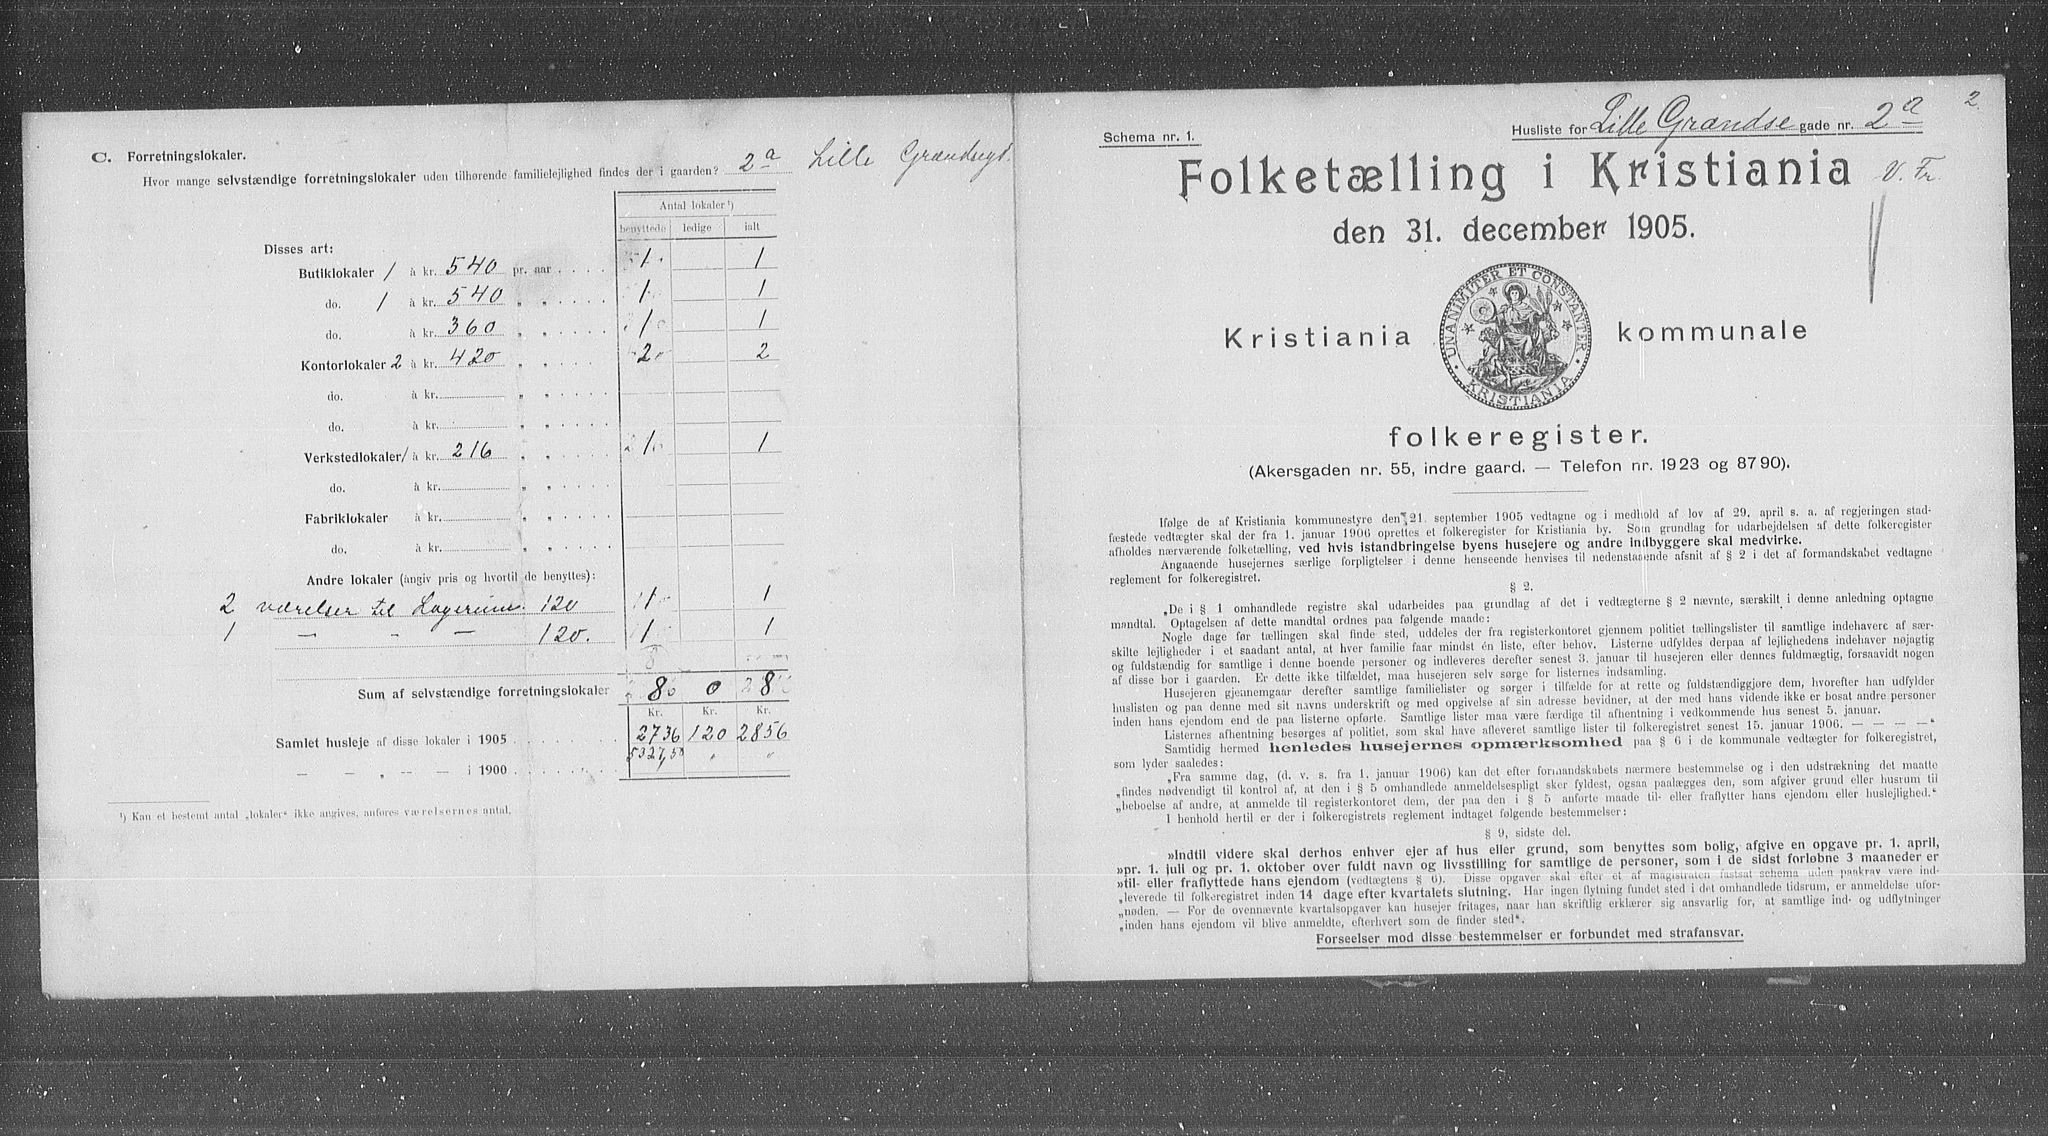 C. Forretningslokaler.
Hvor mange selvstændige forretningslokaler uden tilhørende familielejlighed findes der i gaarden? 2a Lille Grændsegd.
Antal lokaler ¹)
benyttede ledige ialt
Disses art:
Butiklokaler 1 à kr. 540 pr. aar . . . . 1 1
do. 1 à kr. 540 „ „ . . . . . 1 1
do. à kr. 360 „ „ . . . . . 1 1
Kontorlokaler 2 à kr. 420 „ „ . . . . . 2 2
do. à kr. „ „ . . . . .
do. à kr. „ „ . . . . .
Verkstedlokaler 1 à kr. 216 „ „ . . . . . 1 1
do. à kr. „ „ . . . . .
Fabriklokaler à kr. „ „ . . . . .
do. à kr. „ „ . . . . .
Andre lokaler (angiv pris og hvortil de benyttes):
2 værelser til Lagerrum. 120 1 1
1 — „ — 120. 1 1
8
Sum af selvstændige forretningslokaler 8 0 8
Kr. Kr. Kr.
Samlet husleje af disse lokaler i 1905 . . . . . 2736 120 2856
— — „ — — i 1900 . . . . . 5327,50 „ „
¹) Kan et bestemt antal „lokaler“ ikke angives, anføres værelsernes antal.
2
Schema nr. 1.
Husliste for Lille Grændse gade nr. 2a
Folketælling i Kristiania V. Fr.
den 31. december 1905.
UNANIMITER ET CONSTANTER
KRISTIANIA
Kristiania kommunale
folkeregister.
(Akersgaden nr. 55, indre gaard. — Telefon nr. 1923 og 8790).
Ifølge de af Kristiania kommunestyre den 21. september 1905 vedtagne og i medhold af lov af 29. april s. a. af regjeringen stad-
fæstede vedtægter skal der fra 1. januar 1906 oprettes et folkeregister for Kristiania by. Som grundlag for udarbejdelsen af dette folkeregister
afholdes nærværende folketælling, ved hvis istandbringelse byens husejere og andre indbyggere skal medvirke.
Angaaende husejernes særlige forpligtelser i denne henseende henvises til nedenstaaende afsnit af § 2 i det af formandskabet vedtagne
reglement for folkeregistret.
§ 2.
„De i § 1 omhandlede registre skal udarbeides paa grundlag af det i vedtægterne § 2 nævnte, særskilt i denne anledning optagne
mandtal. Optagelsen af dette mandtal ordnes paa følgende maade:
Nogle dage før tællingen skal finde sted, uddeles der fra registerkontoret gjennem politiet tællingslister til samtlige indehavere af sær-
skilte lejligheder i et saadant antal, at hver familie faar mindst én liste, efter behov. Listerne udfyldes derpaa af lejlighedens indehaver nøjagtig
og fuldstændig for samtlige i denne boende personer og indleveres derefter senest 3. januar til husejeren eller dennes fuldmægtig, forsaavidt nogen
af disse bor i gaarden. Er dette ikke tilfældet, maa husejeren selv sørge for listernes indsamling.
Husejeren gjennemgaar derefter samtlige familielister og sørger i tilfælde for at rette og fuldstændiggjøre dem, hvorefter han udfylder
huslisten og paa denne med sit navns underskrift og med opgivelse af sin adresse bevidner, at der med hans vidende ikke er bosat andre personer
inden hans ejendom end de paa listerne opførte. Samtlige lister maa være færdige til afhentning i vedkommende hus senest 5. januar.
Listernes afhentning besørges af politiet, som skal have afleveret samtlige lister til folkeregistret senest 15. januar 1906. — — — —“
Samtidig hermed henledes husejernes opmærksomhed paa § 6 i de kommunale vedtægter for folkeregistret,
som lyder saaledes:
„Fra samme dag, (d. v. s. fra 1. januar 1906) kan det efter formandskabets nærmere bestemmelse og i den udstrækning det maatte
„findes nødvendigt til kontrol af, at den i § 5 omhandlede anmeldelsespligt sker fyldest, ogsaa paalægges den, som afgiver grund eller husrum til
„beboelse af andre, at anmelde til registerkontoret dem, der paa den i § 5 anførte maade til- eller fraflytter hans ejendom eller huslejlighed.“
I henhold hertil er der i folkeregistrets reglement indtaget følgende bestemmelser:
§ 9, sidste del.
»Indtil videre skal derhos enhver ejer af hus eller grund, som benyttes som bolig, afgive en opgave pr. 1. april,
»pr. 1. juli og pr. 1. oktober over fuldt navn og livsstilling for samtlige de personer, som i de sidst forløbne 3 maaneder er
»til- eller fraflyttede hans ejendom (vedtægtens § 6). Disse opgaver skal efter et af magistraten fastsat schema uden paakrav være ind-
„leverede til folkeregistret inden 14 dage efter kvartalets slutning. Har ingen flytning fundet sted i det omhandlede tidsrum, er anmeldelse ufor-
„nøden. — For de ovennævnte kvartalsopgaver kan husejer fritages, naar han skriftlig erklærer sig ansvarlig for, at samtlige ind- og udflytninger
„inden hans ejendom vil blive anmeldte, efterhvert som de finder sted“.
Forseelser mod disse bestemmelser er forbundet med strafansvar.